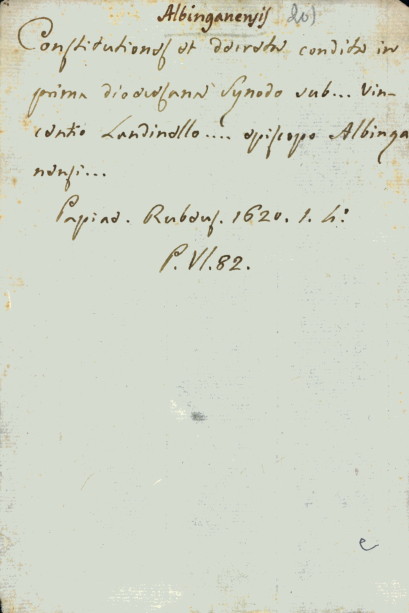 Albinganensis 201
Constitutiones et decreta condita in
prima dioecesana Synodo sub... Vin-
centio Landinello.... episcopo Albinga
nensi...
Papiae. Rubeus. 1620. 1. 4°
P. VI. 82.
e